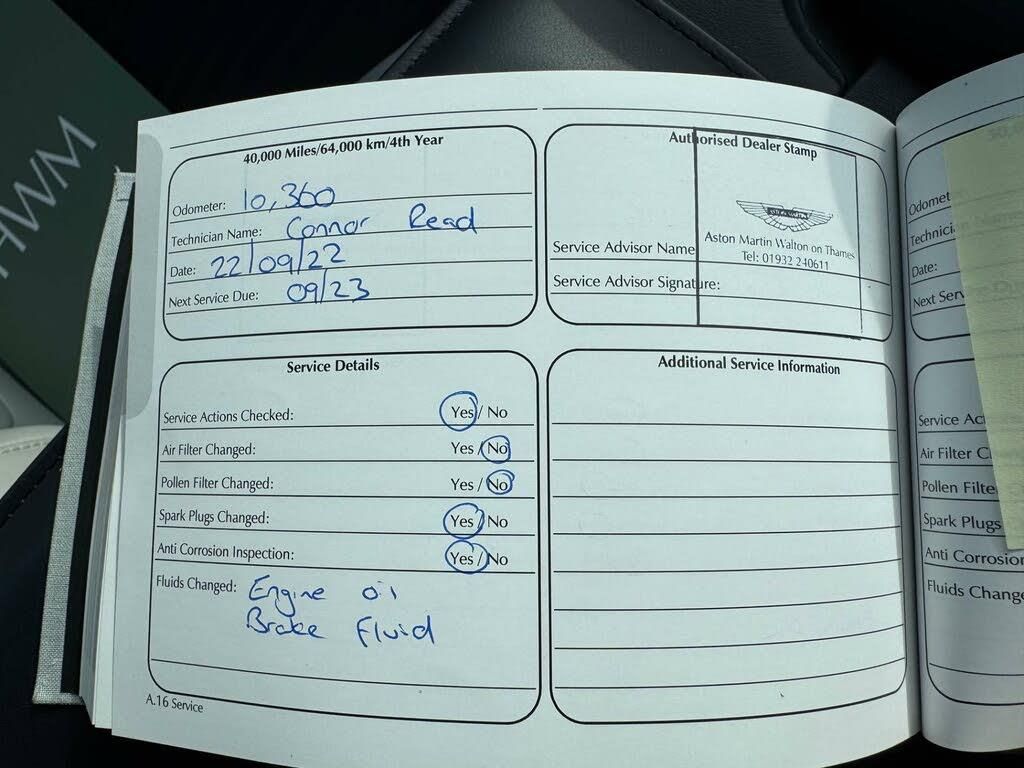 HWM
40,000 Miles/64,000 km/4th Year
Odometer: 10,360
Technician Name: Connor Read
Date: 22/09/22
Next Service Due: 09/23
Authorised Dealer Stamp
ASTON MARTIN
Aston Martin Walton on Thames
Tel: 01932 240611
Service Advisor Name
Service Advisor Signature:
Service Details
Service Actions Checked: Yes / No
Air Filter Changed: Yes / No
Pollen Filter Changed: Yes / No
Spark Plugs Changed: Yes / No
Anti Corrosion Inspection: Yes / No
Fluids Changed: Engine oil
Brake Fluid
A.16 Service
Additional Service Information
Odomet
Technici
Date:
Next Serv
Service Act
Air Filter C
Pollen Filte
Spark Plugs
Anti Corrosion
Fluids Change